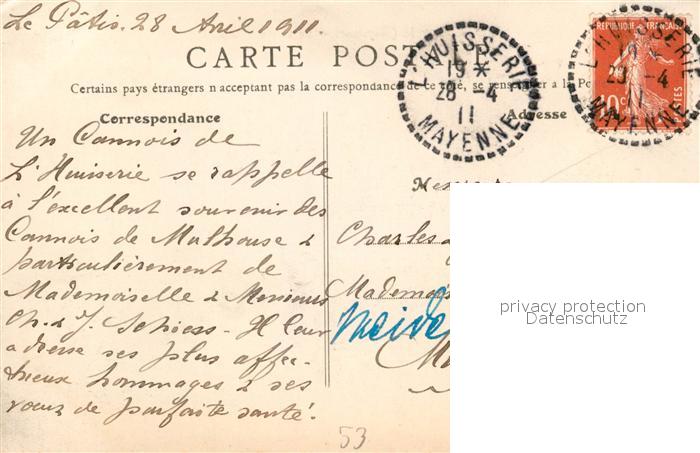 Le Pâtis. 28 Avril 1911.
CARTE POST
Certains pays étrangers n'acceptant pas la correspondance de ce côté, se renseigner à la Po
Correspondance
Adresse
Un Cannois de
L'Huisserie se rappelle
à l'excellent souvenir des
Cannois de Mulhouse &
particulièrement de
Mademoiselle & Messieurs
Ch. & J. Schoess - Il leur
adresse ses plus affec-
tueux hommages & ses
vœux de parfaite santé.
Charles
Mademois
53
L'HUISSERIE
19 *
28 -4
11
MAYENNE
REPUBLIQUE FRANÇAISE
10c
POSTES
L'HUISSERIE
28 -4
11
MAYENNE
privacy protection
Datenschutz